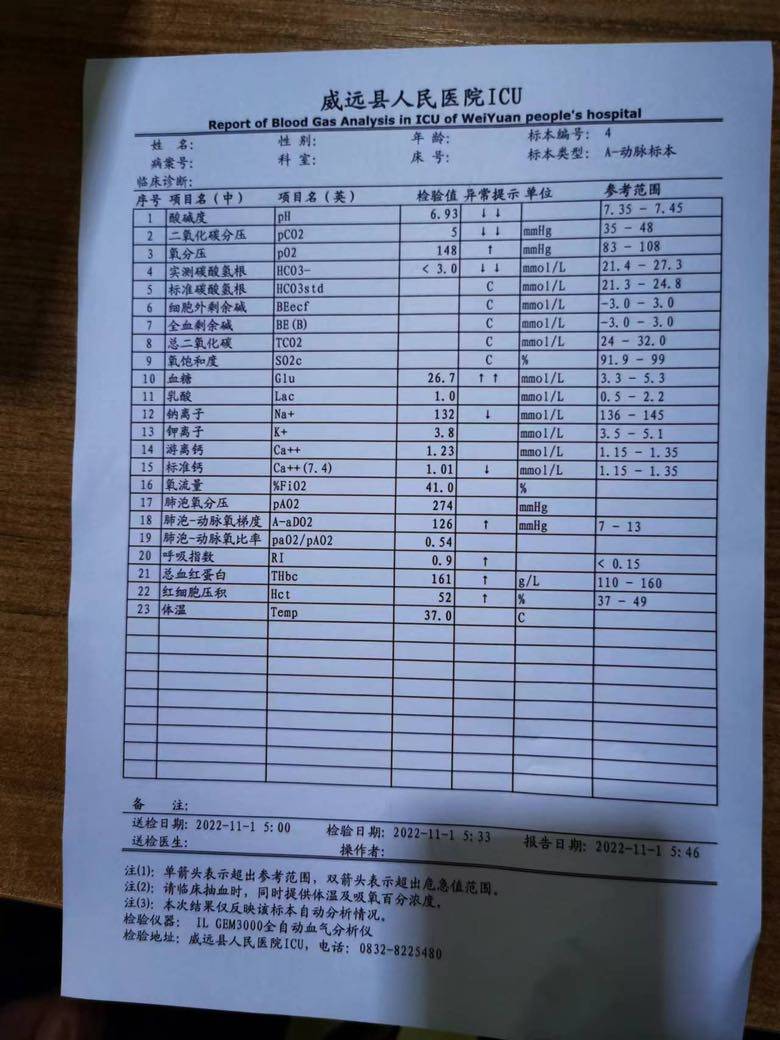 威远县人民医院ICU
Report of Blood Gas Analysis in ICU of WeiYuan people's hospital
姓 名: 性 别: 年 龄: 标本编号: 4
病案号: 科 室: 床 号: 标本类型: A-动脉标本
临床诊断:
序号 项目名(中) 项目名(英) 检验值 异常提示 单位 参考范围
1 酸碱度 pH 6.93 ↓↓ 7.35 - 7.45
2 二氧化碳分压 pCO2 5 ↓↓ mmHg 35 - 48
3 氧分压 pO2 148 ↑ mmHg 83 - 108
4 实测碳酸氢根 HCO3- < 3.0 ↓↓ mmol/L 21.4 - 27.3
5 标准碳酸氢根 HCO3std C mmol/L 21.3 - 24.8
6 细胞外剩余碱 BEecf C mmol/L -3.0 - 3.0
7 全血剩余碱 BE(B) C mmol/L -3.0 - 3.0
8 总二氧化碳 TCO2 C mmol/L 24 - 32.0
9 氧饱和度 SO2c C % 91.9 - 99
10 血糖 Glu 26.7 ↑↑ mmol/L 3.3 - 5.3
11 乳酸 Lac 1.0 mmol/L 0.5 - 2.2
12 钠离子 Na+ 132 ↓ mmol/L 136 - 145
13 钾离子 K+ 3.8 mmol/L 3.5 - 5.1
14 游离钙 Ca++ 1.23 mmol/L 1.15 - 1.35
15 标准钙 Ca++(7.4) 1.01 ↓ mmol/L 1.15 - 1.35
16 氧流量 %FiO2 41.0 %
17 肺泡氧分压 pAO2 274 mmHg
18 肺泡-动脉氧梯度 A-aDO2 126 ↑ mmHg 7 - 13
19 肺泡-动脉氧比率 paO2/pAO2 0.54
20 呼吸指数 RI 0.9 ↑ < 0.15
21 总血红蛋白 THbc 161 ↑ g/L 110 - 160
22 红细胞压积 Hct 52 ↑ % 37 - 49
23 体温 Temp 37.0 C
备 注:
送检日期: 2022-11-1 5:00 检验日期: 2022-11-1 5:33 报告日期: 2022-11-1 5:46
送检医生: 操作者:
注(1): 单箭头表示超出参考范围, 双箭头表示超出危急值范围。
注(2): 请临床抽血时, 同时提供体温及吸氧百分浓度。
注(3): 本次结果仅反映该标本自动分析情况。
检验仪器: IL GEM3000全自动血气分析仪
检验地址: 威远县人民医院ICU, 电话: 0832-8225480